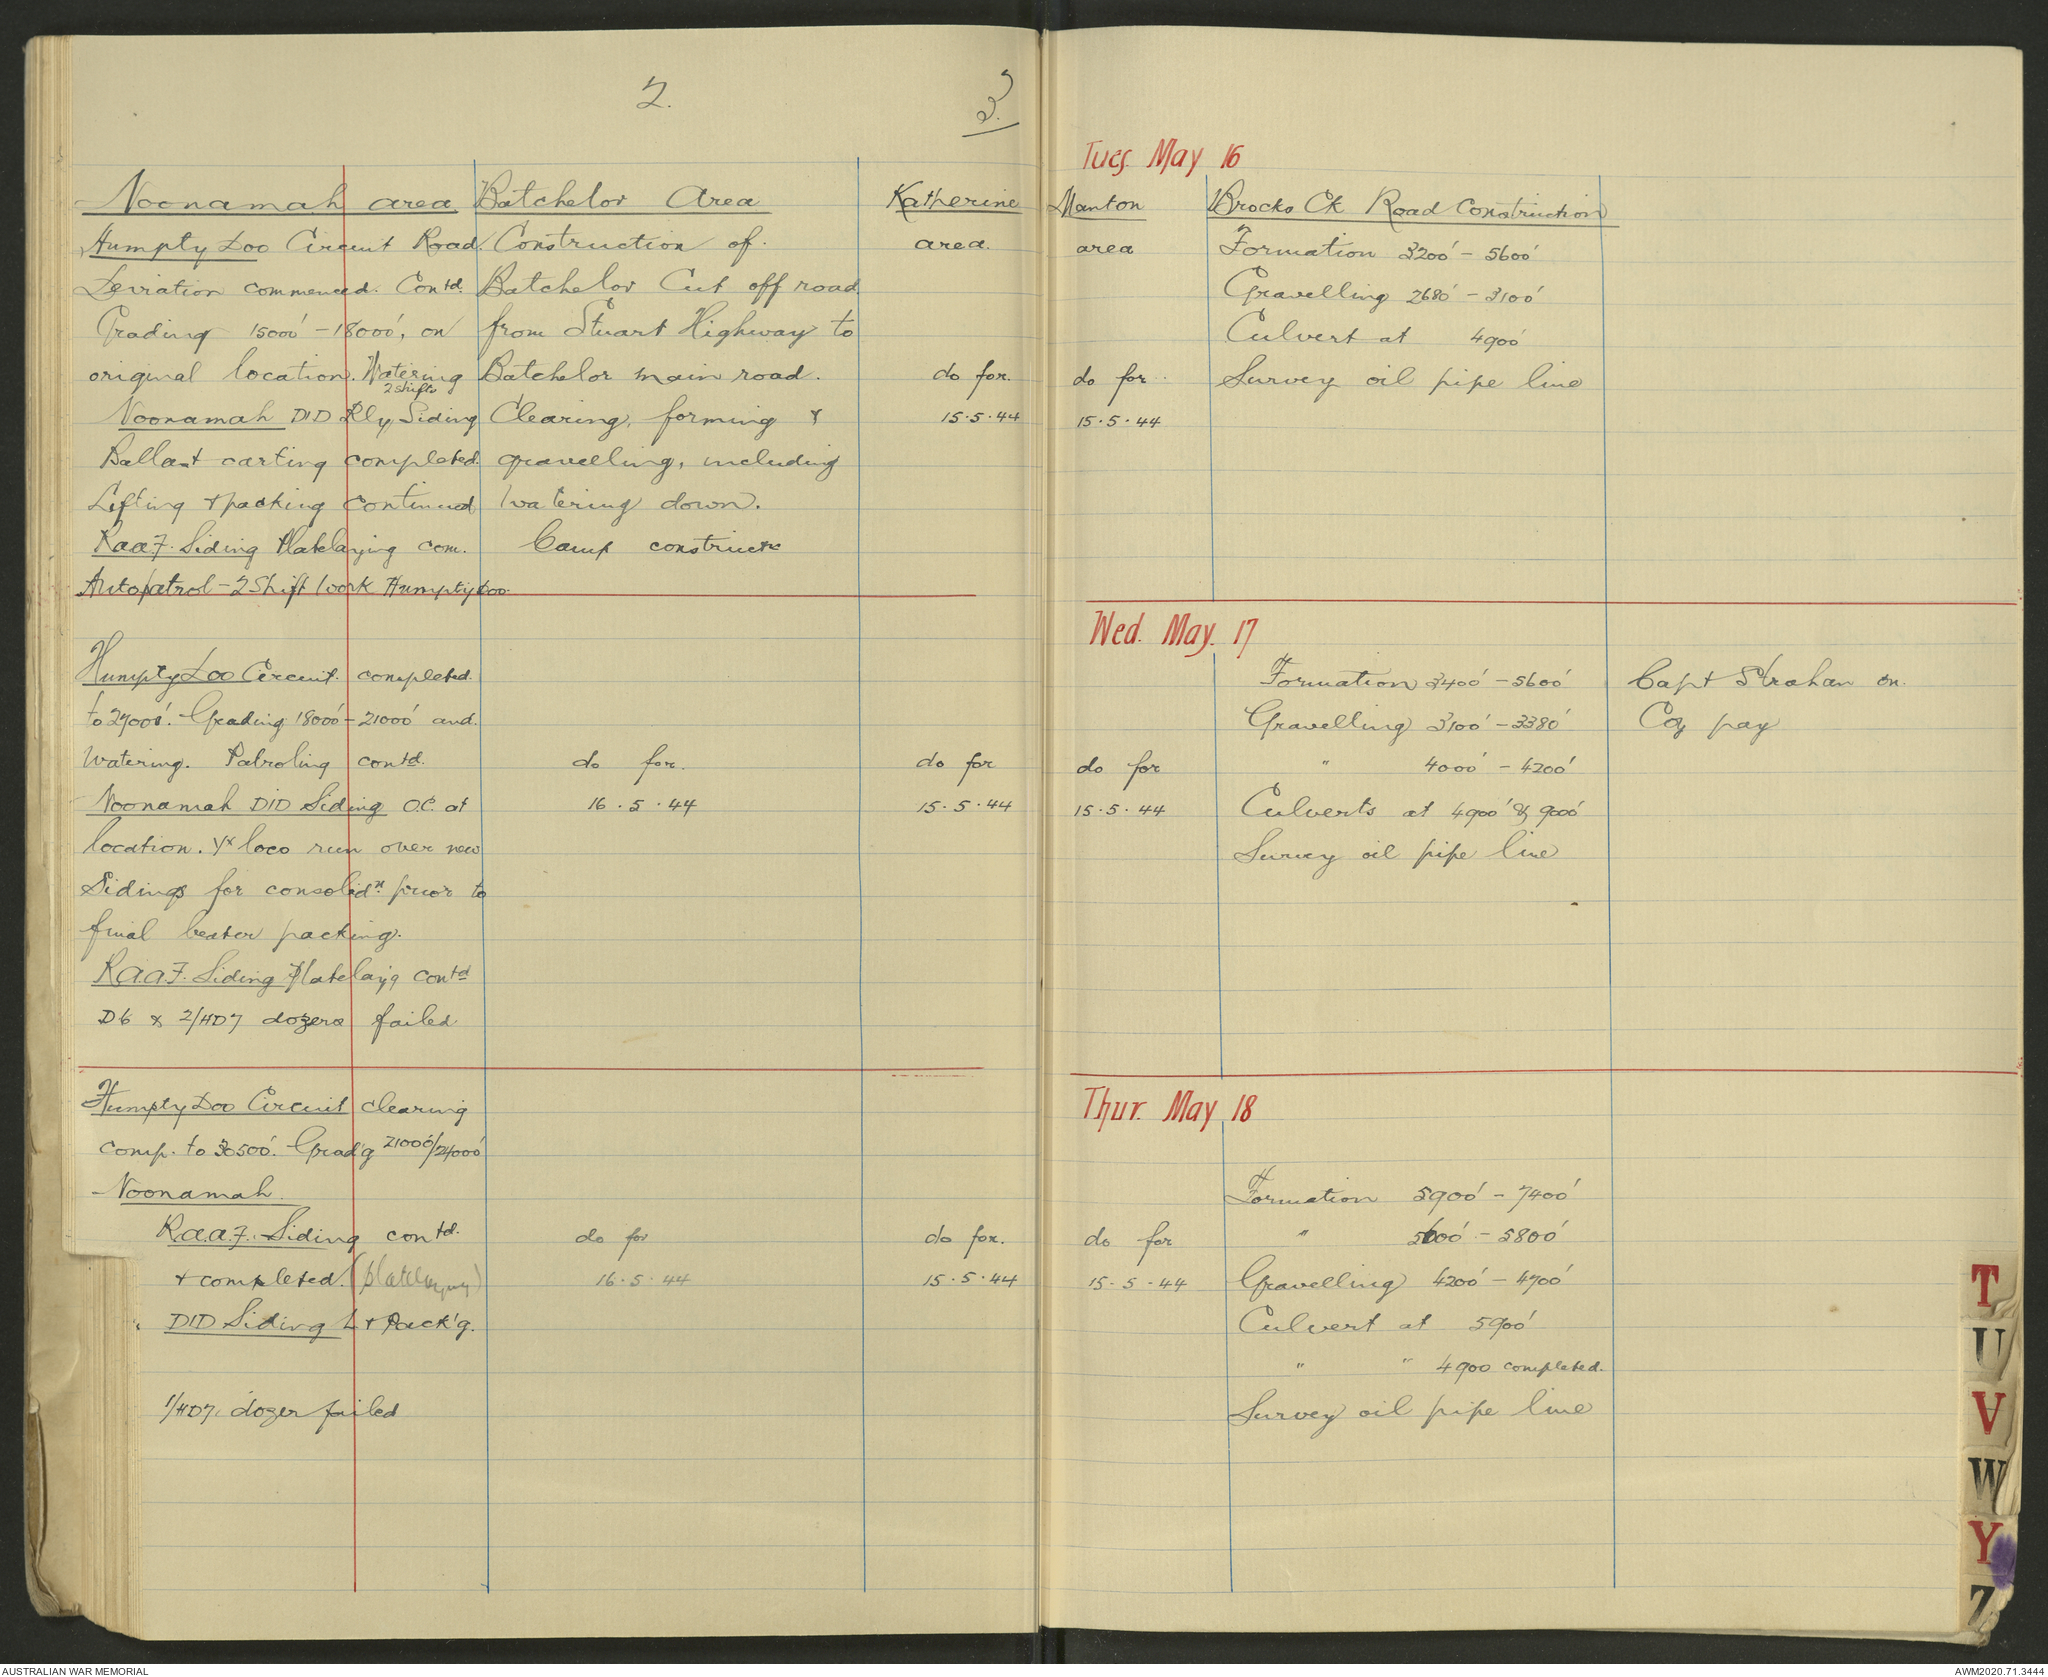 2.
3.
Noonamah area
Humpty Doo Circuit Road
Deviation commenced. Contd.
Grading 15000' - 18000', on
original location. Watering
2 shifts
Noonamah DID Rly Siding
Ballast carting completed.
Lifting + packing continued
R.a.a.F. Siding Platelaying com.
Autopatrol - 2 Shift work Humpty Doo.
Batchelor Area
Construction of
Batchelor Cut off road
from Stuart Highway to
Batchelor main road.
Clearing, forming &
gravelling, including
watering down.
Camp construct
Katherine
area.
do for.
15.5.44
Tues. May 16
Manton
area
do for
15.5.44
Brocks Ck Road Construction
Formation 3200' - 5600'
Gravelling 2680' - 3100'
Culvert at 4900'
Survey oil pipe line
Humpty Doo Circuit. completed.
to 27000'. Grading 18000' - 21000' and.
Watering. Patroling contd.
Noonamah DID Siding O.C. at
location. loco run over new
Sidings for consolidn. prior to
final beater packing.
R.a.a.F. Siding Platelay'g contd
D6 & 2/HD7 dozers failed
do for.
16.5.44
do for
15.5.44
Wed. May. 17
do for
15.5.44
Formation 3400' - 5600'
Gravelling 3100' - 3380'
" 4000' - 4200'
Culverts at 4900' & 9000'
Survey oil pipe line
Capt Strahan on.
Coy pay
Humpty Doo Circuit clearing
comp. to 30500'. Grad'g 21000'/24000'
Noonamah.
R.a.a.F. Siding contd.
+ completed. (platelaying)
DID Siding L + Pack'g.
1/HD7. dozer failed
do for
16.5.44
do for.
15.5.44
Thur. May 18
do for
15.5.44
Formation 5900' - 7400'
" 5600' - 5800'
Gravelling 4200' - 4700'
Culvert at 5900'
" " 4900 completed.
Survey oil pipe line
T
U
V
W
Y
Z
AUSTRALIAN WAR MEMORIAL
AWM2020.71.3444